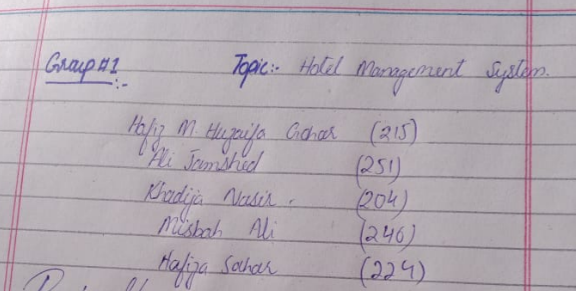 Group#1:- Topic:- Hotel Management System.
Hafiz M. Huzaifa Gohar (215)
Ali Jamshed (251)
Khadija Nasir. (204)
Misbah Ali (246)
Hafiza Sahar (224)